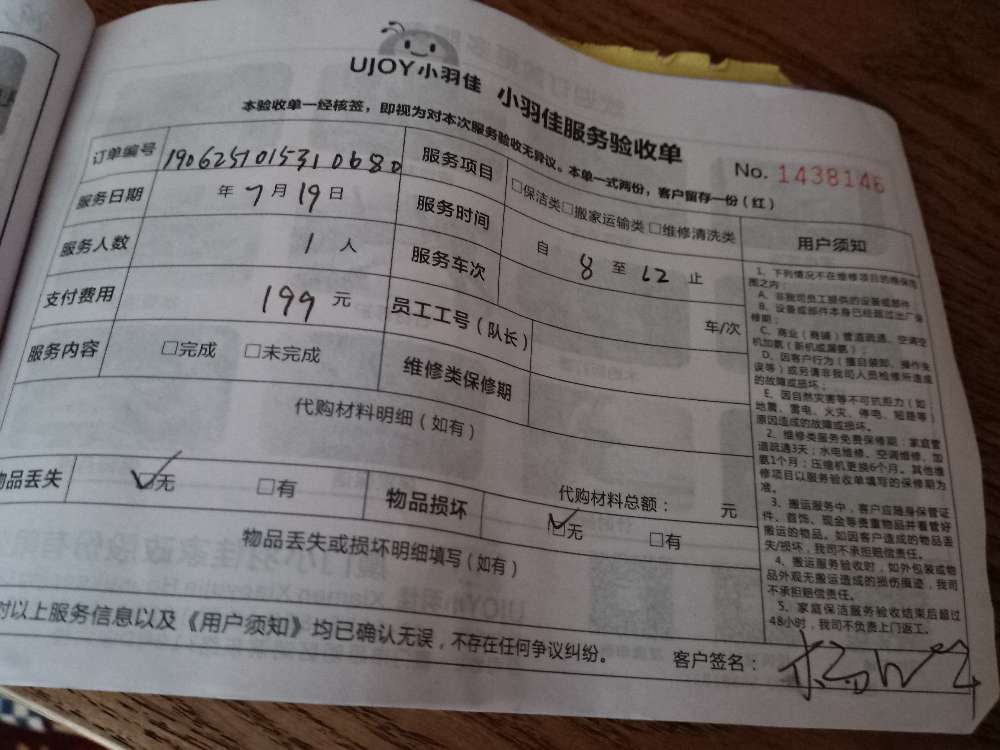 UJOY小羽佳 小羽佳服务验收单
本验收单一经核签，即视为对本次服务验收无异议。本单一式两份，客户留存一份（红）
No. 1438146
订单编号 190625101531 0680 服务项目 □保洁类□搬家运输类 □维修清洗类
服务日期 年 7 月 19 日 服务时间 自 8 至 12 止
服务人数 1 人 服务车次 车/次
支付费用 199 元 员工工号（队长）
服务内容 □完成 □未完成 维修类保修期
代购材料明细（如有）
代购材料总额： 元
物品丢失 ☑无 □有 物品损坏 ☑无 □有
物品丢失或损坏明细填写（如有）
对以上服务信息以及《用户须知》均已确认无误，不存在任何争议纠纷。
客户签名：
用户须知
1、下列情况不在维修项目的维保范
围之内：
A、非我司员工提供的设备或部件；
B、设备或部件本身已经超过出厂保
修期；
C、商业（商铺）管道疏通、空调空
机加氨（新机或漏氨）；
D、因客户行为（擅自装卸、操作失
误等）或另请非我司人员检修所造成
的故障或损坏；
E、因自然灾害等不可抗拒力（如：
地震、雷电、火灾、停电、短路等）
原因造成的故障或损坏。
2、维修类服务免费保修期：家庭管
道疏通3天；水电维修、空调维修、加
氨1个月；压缩机更换6个月。其他维
修项目以服务验收单填写的保修期为
准。
3、搬运服务中，客户应随身保管证
件、首饰、现金等贵重物品并看管好
搬运的物品。如因客户造成的物品丢
失/损坏，我司不承担赔偿责任。
4、搬运服务验收时，如外包装或物
品外观无搬运造成的损伤痕迹，我司
不承担赔偿责任。
5、家庭保洁服务验收结束后超过
48小时，我司不负责上门返工。